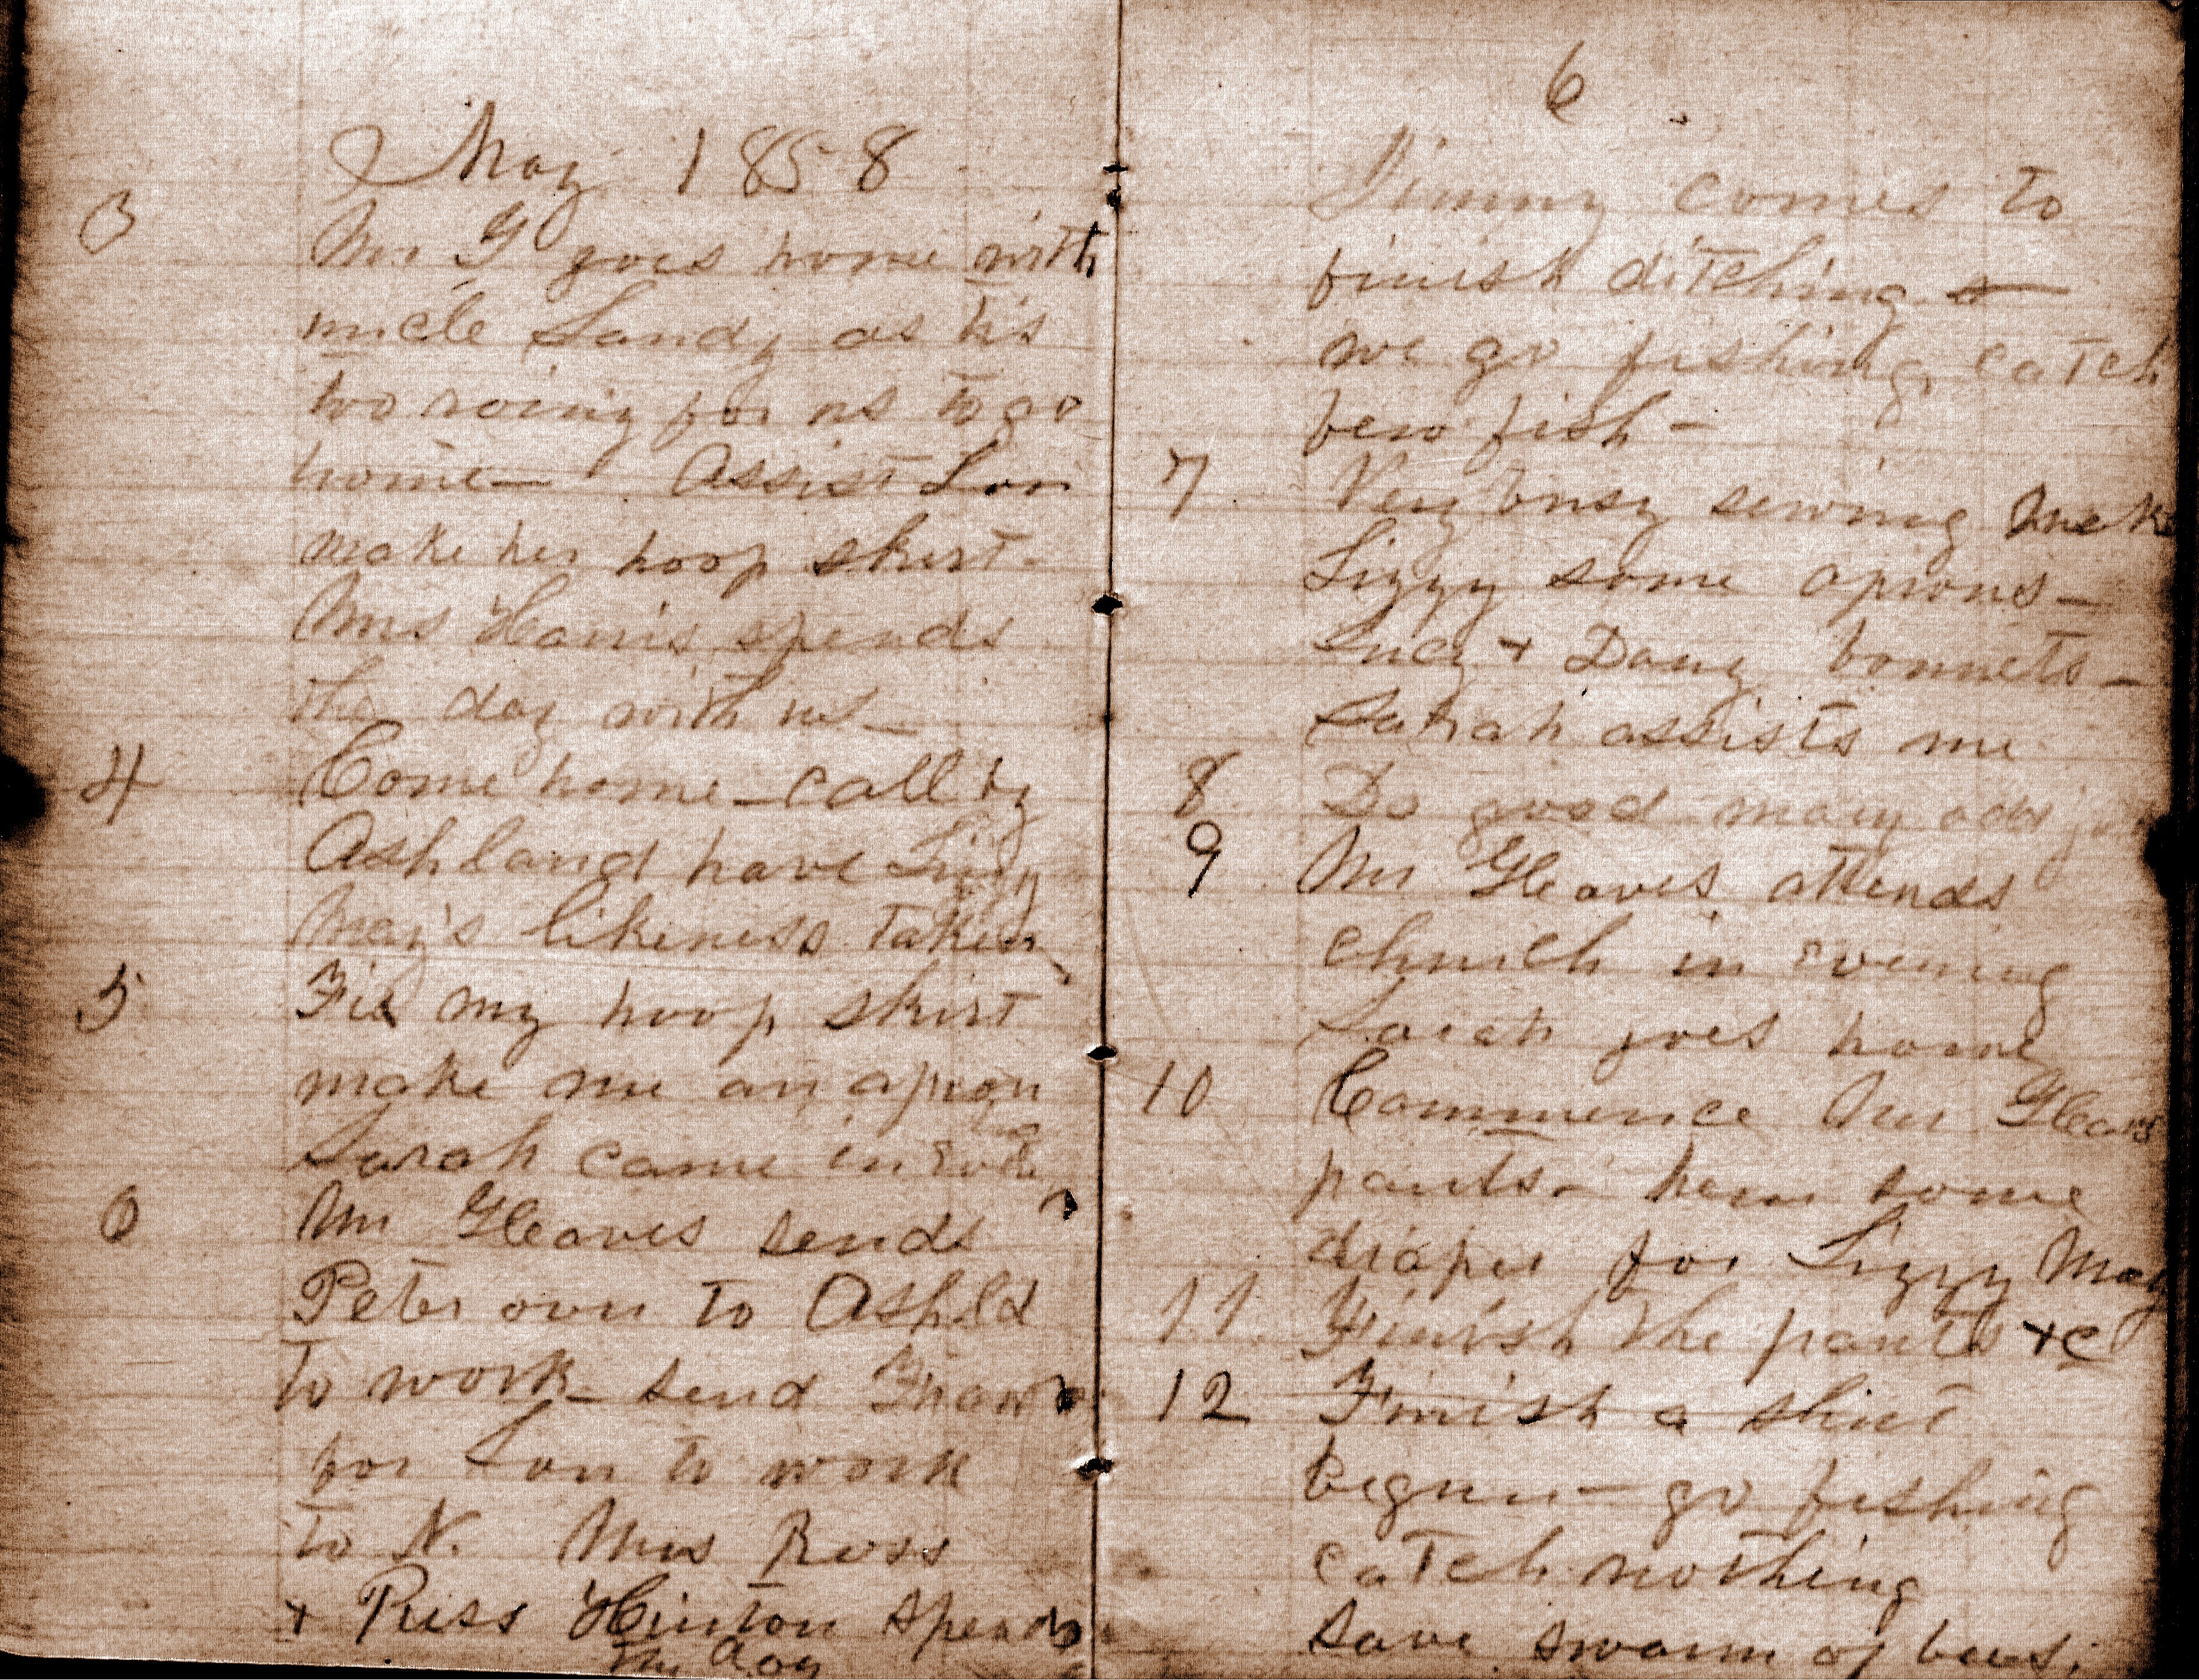 May 1858
3 Mr G goes home with
uncle Sandy as tis
too rainy for us to go
home— Assist Lou
make her hoop skirt.
Mrs Harris spends
the day with us—
4 Come home—call by
Ashland have Lizzy
May's likeness taken
5 Fix my hoop skirt
make me an apron
Sarah came in
6 Mr Gleaves sends
Peter over to Ashld
to work— send
for Lou to work
to N. Mrs Ross
+ Puss Hinton spends
the day
6
Jimmy comes to
finish ditching
we go fishing, catch
few fish—
7 Very busy sewing Make
Lizzy some aprons—
Lucy + Dany bonnets—
Sarah assists me
8 Do good many odd
9 Mr Gleaves attends
church in evening
Sarah goes home
10 Commence Mr Gleaves
pants— hem some
diaper for Lizzy May
11 Finish the pants +c
12 Finish a shirt
begun— go fishing
catch nothing
save swarm of bees.